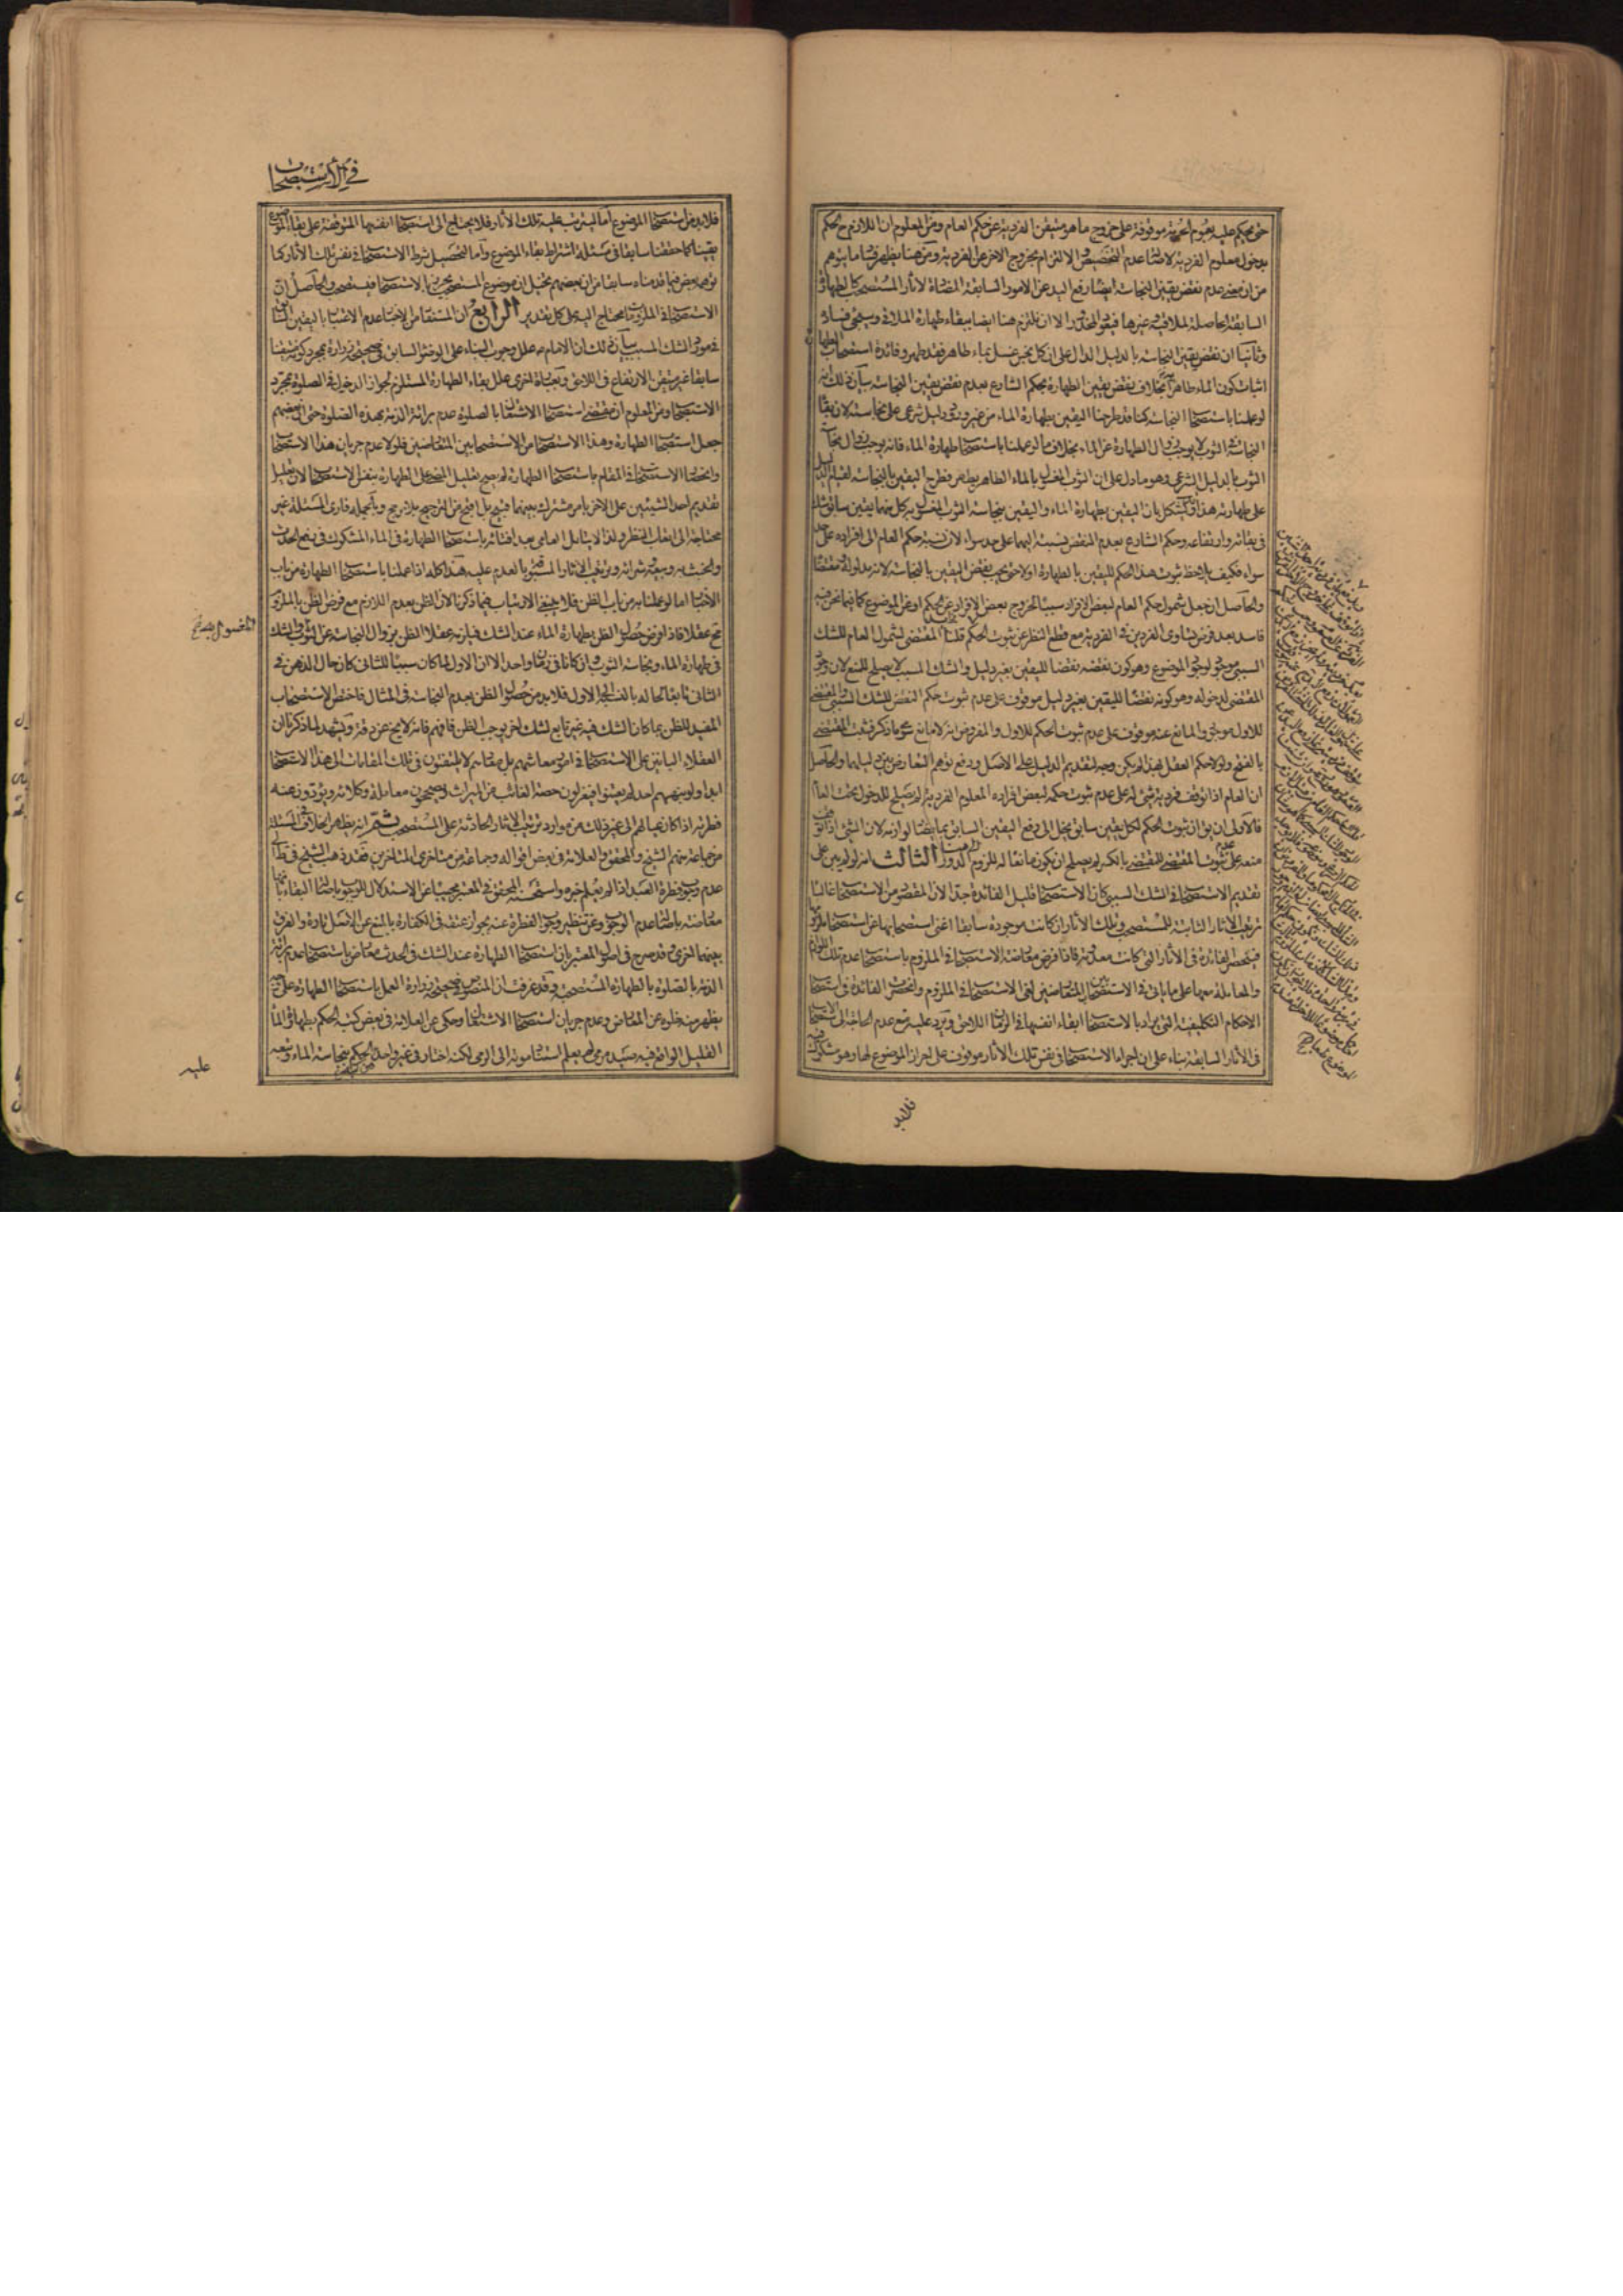 حتى يحكم عليه بعموم الحرمة موقوفة على خروج ما هو متيقن الفردية عن حكم العام ومن المعلوم ان اللازم ح الحكم
بدخول معلوم الفردية لاصالة عدم التخصيص لا الالتزام بخروج الاخر عن الفردية ومن هنا يظهر فساد ما يتوهم
من ان مقتضى عدم نقض يقين النجاسة ايضا رفع اليد عن الامور السابقة المضادة لاثار المستصحب كالطهارة
السابقة الحاصلة لملاقيه وغيرها فيعود المحذور الا ان نلتزم هنا ايضا ببقاء طهارة الملاقي وسيجئ فساده
وثانيا ان نقض يقين النجاسة بالدليل الدال على ان كل نجس غسل بماء طاهر فقد طهر وفائدة استصحاب الطهارة
اثبات كون الماء طاهرا به بخلاف نقض يقين الطهارة بحكم الشارع بعدم نقض يقين النجاسة بيان ذلك انه
لو عملنا باستصحاب النجاسة كنا قد طرحنا اليقين بطهارة الماء من غير ورود دليل شرعي على نجاسته لان بقاء
النجاسة في الثوب لا يوجب زوال الطهارة عن الماء بخلاف ما لو عملنا باستصحاب طهارة الماء فانه يوجب زوال نجاسة
الثوب بالدليل الشرعي وهو ما دل على ان الثوب المغسول بالماء الطاهر يطهر فطرح اليقين بالنجاسة لقيام الدليل
على طهارته هذا وقد يشكل بان اليقين بطهارة الماء واليقين بنجاسة الثوب المغسول به كل منهما يقين سابق شك
في بقائه وارتفاعه وحكم الشارع بعدم النقض نسبته اليهما على حد سواء لان نسبة حكم العام الى افراده على حد
سواء فكيف يلاحظ ثبوت هذا الحكم لليقين بالطهارة اولا حتى يجب نقض اليقين بالنجاسة لانه مدلوله ومقتضاه
والحاصل ان جعل شمول حكم العام لبعض الافراد سببا لخروج بعض الافراد عن الحكم او عن الموضوع كما فيما نحن فيه
فاسد بعد فرض تساوي الفردين في الفردية مع قطع النظر عن ثبوت الحكم قلت المقتضى لشمول العام للشك
السببي موجود لوجود الموضوع وهو كون نقضه نقضا لليقين بغير دليل والشك المسبب لا يصلح للمنع لان وجود
المقتضى لدخوله وهو كونه نقضا لليقين بغير دليل موقوف على عدم ثبوت حكم النقض للشك السببي والمقتضى
للاول موجود والمانع عنه موقوف على عدم ثبوت الحكم للاول والمفروض انه لا مانع سوى ما ذكر فثبت المقتضى
بالفتح ولولا حكم العقل بهذا لم يكن وجه لتقديم الدليل على الاصل ودفع توهم التعارض بين دليليهما والحاصل
ان العام اذا توقف فردية شئ له على عدم ثبوت حكمه لبعض افراده المعلوم الفردية لم يصلح للدخول تحت العام
فالاولى ان يق ان ثبوت الحكم لكل يقين سابق يحل الى رفع اليقين السابق بما يضاد لوازمه لان الشئ اذا توقف
منعه على ثبوت المقتضى للمقتضى بالكسر لم يصلح ان يكون مانعا له للزوم الدور الثالث انه لو لم يبن على
تقديم الاستصحاب في الشك السببي كان الاستصحاب قليل الفائدة جدا لان المقصود من الاستصحاب غالبا
ترتيب الاثار الثابتة للمستصحب وتلك الاثار ان كانت موجودة سابقا اغنى استصحابها عن استصحاب ملزومها
فينحصر الفائدة في الاثار التي كانت معدومة فاذا فرض معارضة الاستصحاب في الملزوم باستصحاب عدم تلك اللوازم
والمعاملة معهما على ما ياتي في الاستصحابين المتعارضين لغى الاستصحاب في الملزوم وانحصرت الفائدة في استصحاب
الاحكام التكليفية التي يراد بالاستصحاب ابقاء انفسها في الزمان اللاحق ويرد عليه منع عدم الحاجة الى الاستصحاب
في الاثار السابقة بناء على ان اجراء الاستصحاب في نفس تلك الاثار موقوف على احراز الموضوع لها وهو مشكوك فيه
فلابد
في الاستصحاب
فلابد من استصحاب الموضوع اما ليترتب عليه تلك الاثار فلا يحتاج الى استصحاب انفسها المتوقفة على بقاء الموضوع
يقينا كما حققنا سابقا في مسئلة اشتراط بقاء الموضوع واما لتحصيل شرط الاستصحاب في نفس تلك الاثار كما
توهمه بعض فيما قدمناه سابقا من ان بعضهم تخيل ان موضوع المستصحب يحرز بالاستصحاب فيستصحب والحاصل ان
الاستصحاب في الملزومات محتاج اليه على كل تقدير الرابع ان المستفاد من الاخبار عدم الاعتبار باليقين السابق
في مورد الشك المسبب بيان ذلك ان الامام ع علل وجوب البناء على الوضوء السابق في صحيحة زرارة بمجرد كونه متيقنا
سابقا غير متيقن الارتفاع في اللاحق وبعبارة اخرى علل بقاء الطهارة المستلزم لجواز الدخول في الصلوة بمجرد
الاستصحاب ومن المعلوم ان مقتضى استصحاب الاشتغال بالصلوة عدم برائة الذمة بهذه الصلوة حتى ان بعضهم
جعل استصحاب الطهارة وهذا الاستصحاب من الاستصحابين المتعارضين فلولا عدم جريان هذا الاستصحاب
وانحصار الاستصحاب في المقام باستصحاب الطهارة لم يصح تعليل المضى على الطهارة بنفس الاستصحاب لان تعليل
تقديم احد الشيئين على الاخر بامر مشترك بينهما قبيح بل اقبح من الترجيح بلا مرجح وبالجملة فارى المسئلة غير
محتاجة الى اتعاب النظر ولذا لا يتامل العامي بعد افتائه باستصحاب الطهارة في الماء المشكوك في رفع الحدث
والخبث به وبيعه وشرائه وترتيب الاثار المسبوقة بالعدم عليه هذا كله اذا عملنا باستصحاب الطهارة من باب
الاخبار اما لو عملنا به من باب الظن فلا ينبغي الارتياب فيما ذكرنا لان الظن بعدم اللازم مع فرض الظن بالملزوم
مح عقلا فاذا فرض حصول الظن بطهارة الماء عند الشك فيلزمه عقلا الظن بزوال النجاسة عن الثوب والشك
المغسول به صح
في طهارة الماء ونجاسة الثوب وان كانا في زمان واحد الا ان الاول لما كان سببا للثاني كان حال الذهن في
الثاني تابعا لحاله بالنسبة الى الاول فلابد من حصول الظن بعدم النجاسة في المثال فاختص الاستصحاب
المفيد للظن بما كان الشك فيه غير تابع لشك اخر يوجب الظن فافهم فانه لا يخ عن دقة ويشهد لما ذكرنا ان
العقلاء البانين على الاستصحاب في امور معاشهم بل معادهم لا يلتفتون في تلك المقامات الى هذا الاستصحاب
ابدا ولو نبههم احد لم يعتنوا فيعزلون حصة الغائب من الميراث ويصححون معاملة وكلائه ويؤدون عنه
فطرته اذا كان عيالهم الى غير ذلك من موارد ترتيب الاثار الحادثة على المستصحب ثم انه يظهر الخلاف في المسئلة
من جماعة منهم الشيخ والمحقق والعلامة في بعض اقواله وجماعة من متاخري المتاخرين فقد ذهب الشيخ في ط الى
عدم وجوب فطرة العبد اذا لم يعلم خبره واستحسنه المحقق في المعتبر مجيبا عن الاستدلال للوجوب باصالة البقاء بانها
معارضة باصالة عدم الوجوب وعن تنظير وجوب الفطرة عنه بجواز عتقه في الكفارة بالمنع عن الاصل تارة والفرق
بينهما اخرى وقد صرح في اصول المعتبر بان استصحاب الطهارة عند الشك في الحدث معارض باستصحاب عدم برائة
الذمة بالصلوة بالطهارة المستصحبة وقد عرفت ان المنصوص في صحيحة زرارة العمل باستصحاب الطهارة على وجه
يظهر منه خلوه عن المعارض وعدم جريان استصحاب الاشتغال وحكى عن العلامة في بعض كتبه الحكم بطهارة الماء
القليل الواقع فيه صيد مرمي لم يعلم استناد موته الى الرمي لكنه اختار في غير واحد من كتبه الحكم بنجاسة الماء وتبعه
عليه